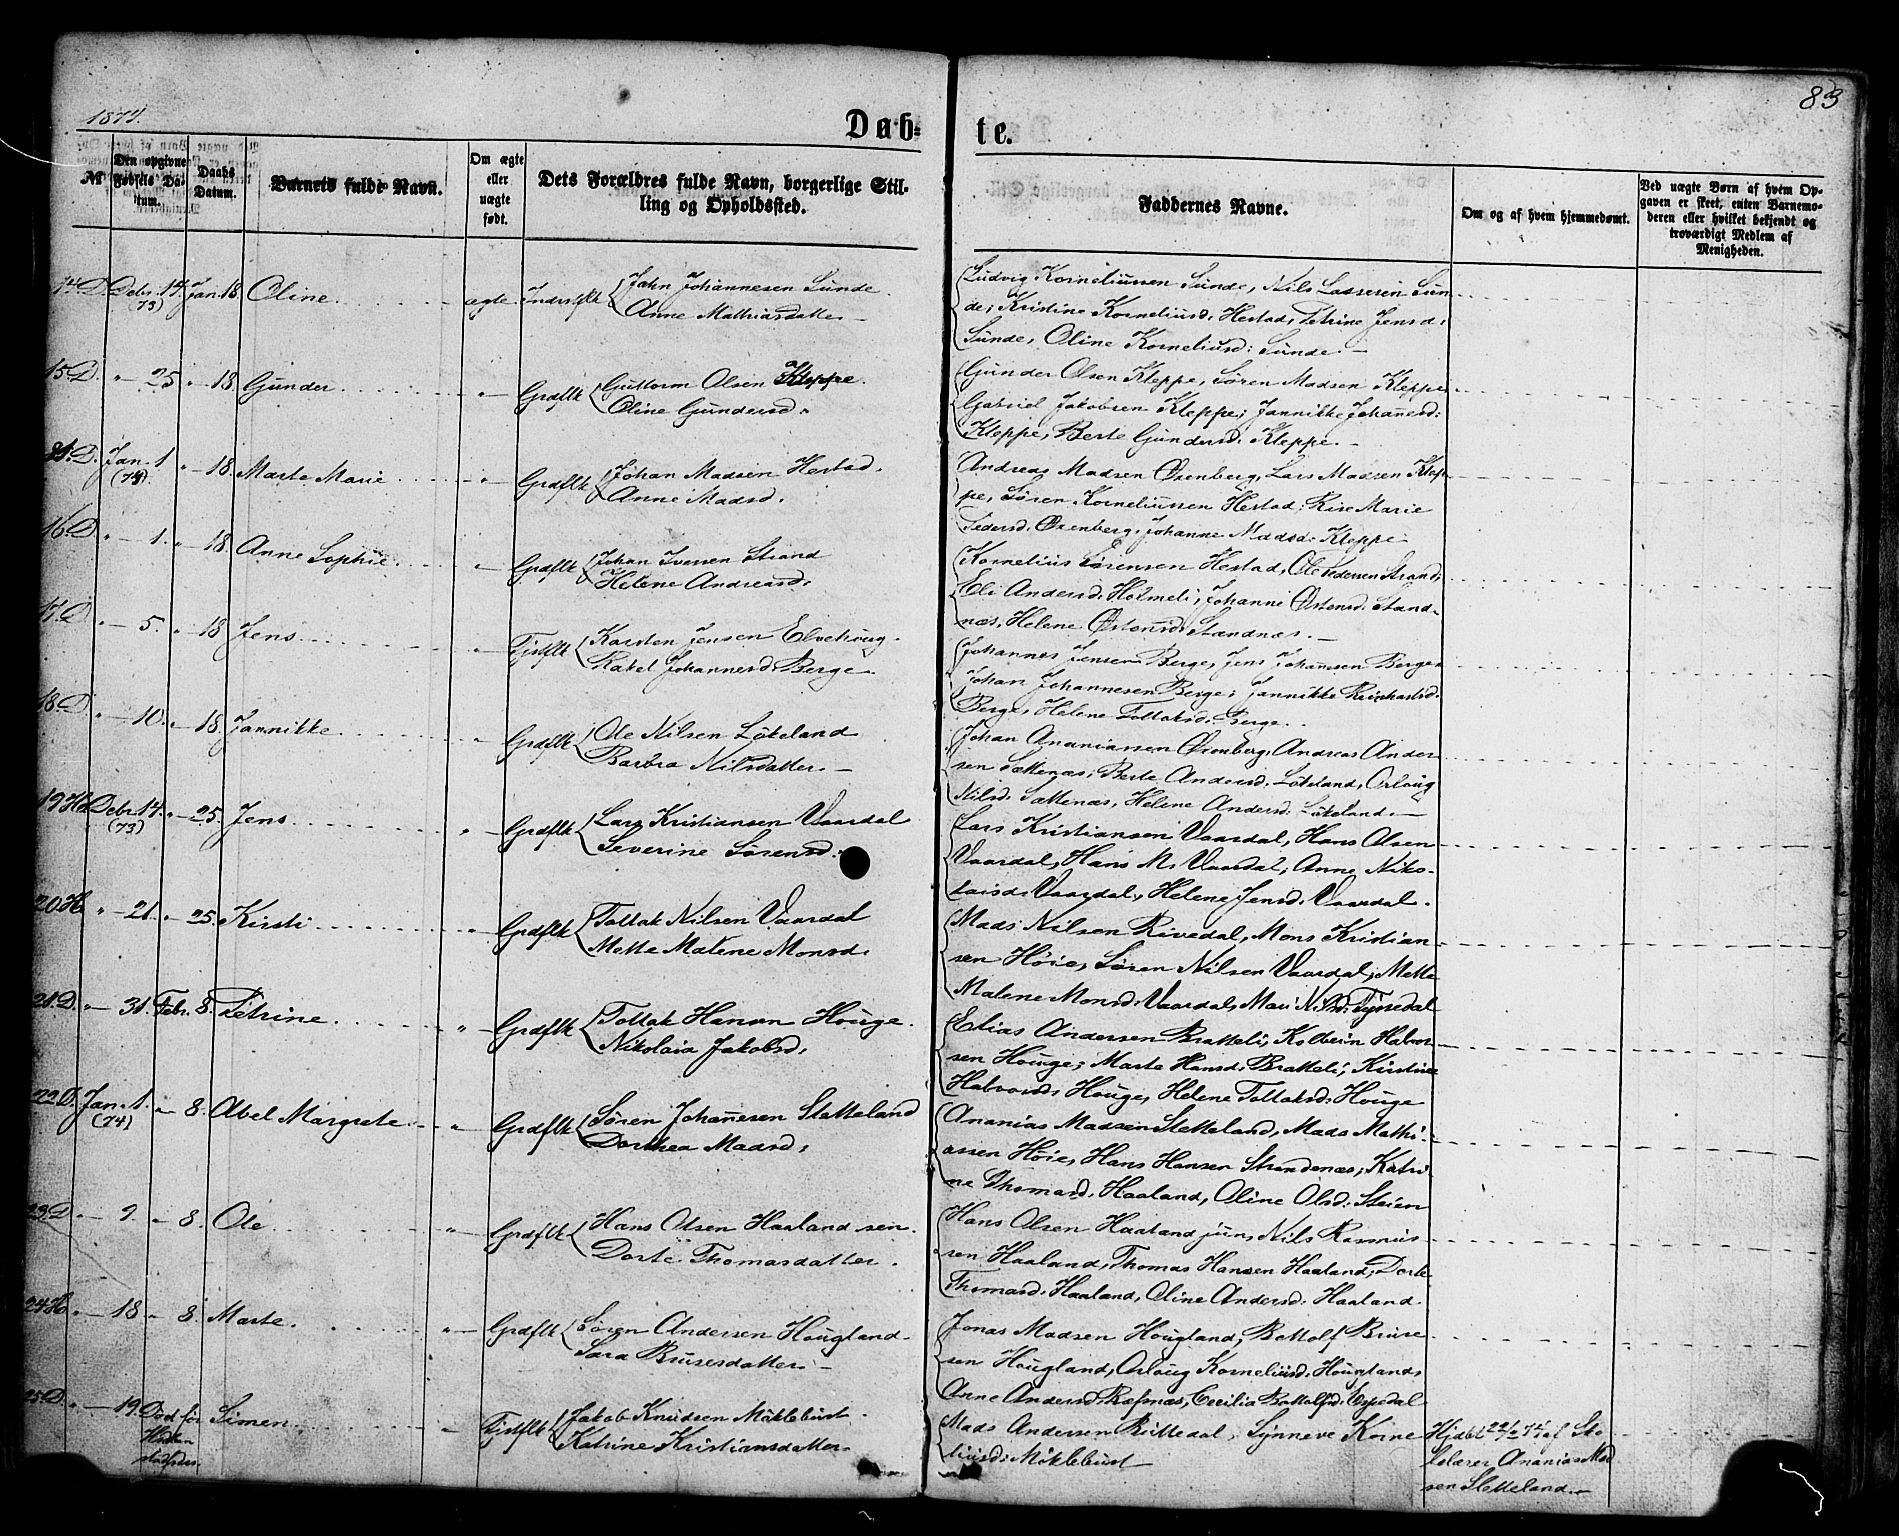 83
1874.
Døb-
te.
№
Den opgivne
Fødsels Da-
tum.
Daabs
Datum.
Barnets fulde Navn.
Om ægte
eller
uægte
født.
Dets Forældres fulde Navn, borgerlige Stil-
ling og Opholdssted.
Faddernes Navne.
Om og af hvem hjemmedømt.
Ved uægte Børn af hvem Op-
gaven er skeet, enten Barnemo-
deren eller hvilket bekjendt og
troværdigt Medlem af
Menigheden.
14 D. Debr. 14. Jan. 18. Oline ægte. Indrstflk John Johannesen Sunde.
(73)
Anne Mathiasdatter. —
Ludvig Korneliussen Sunde, Nils Lassesen Sun-
de; Kristine Korneliusd: Hestad, Petrine Jensd:
Sunde, Oline Korneliusd: Sunde. —
15 D. " — 25 " — 18. Gunder " — Grdflk Guttorm Olsen Kleppe.
Oline Gundersd:
Gunder Olsen Kleppe, Søren Madsen Kleppe
Gabriel Jakobsen Kleppe; Jannikke Johanesd:
Kleppe, Berte Gundersd: Kleppe. —
Jan. 1 " — 18. Marte Marie " — Grdflk Johan Madsen Hestad.
(74)
Anne Madsd.
Andreas Madsen Oxenberg, Lars Madsen Klep-
pe, Søren Korneliussen Hestad; Marie
Pedersd. Oxenberg, Johanne Madsd: Kleppe
16 D " — 1. " — 18. Anne Sophie " — Grdflk Johan Iversen Strand
Helene Andreasd:
Kornelius Sørensen Hestad, Ole Pedersen Strand,
Eli Andersd. Holmeli, Johanne Østensd: Stand-
næs, Helene Østensd: Standnæs. —
17 D " — 5. " — 18 Jens " — Fjstflk Karsten Jensen Elvehoug.
Rakel Johannesd: Berge
Johannes Jensen Berge, Jens Johanesen Berge
Johan Johannesen Berge; Jannikke
Berge, Helene Tollaksd: Berge.
18 D " — 10. " — 18. Jannikke " — Grdflk Ole Nilsen Løkeland
Barbra Nilsdatter. —
Johan Ananiassen Oxenberg, Andreas Ander-
sen Sættenæs; Berte Andersd. Løkeland, Orloug
Nilsd. Sættenæs, Helene Andersd: Løkeland. —
19 H. Debr. 14. " — 25. Jens " — Grdflk Lars Kristiansen Vaardal
(73)
Severine Sørensd.
Lars Kristiansen Vaardal, Hans Olsen
Vaardal, Hans M. Vaardal; Anne Niko-
laisd. Vaardal, Helene Jensd: Vaardal.
20 H " — 21. " — 25. Kirsti " — Grdflk Tollak Nilsen Vaardal
Mette Malene Monsd.
Mads Nilsen Rivedal, Mons Kristian-
sen Høie, Søren Nilsen Vaardal; Mette
Malene Monsd. Vaardal, Mari Nilsd:
21 D. " — 31. Febr. 8. Petrine " — Grdflk Tollak Hansen Houge.
Nikolaia Jakobsd:
Elias Andersen Brakteli, Kolbein Halvor-
sen Houge; Marte Hansd: Brakteli, Kirstine
Halvorsd: Houge, Helene Tollaksd: Houge
22 D. Jan. 1. " — 8. Abel Margrete " — Grdflk Søren Johannesen Sletteland
(74)
Dorthea Madsd:
Ananias Madsen Sletteland, Mads Mathi-
assen Høie, Hans Hansen Strandenæs; Katri-
ne Thomasd. Haaland, Oline Olsd: Steien
23 D " — 9. " — 8. Ole " — Grdflk Hans Olsen Haaland sen.
Dorte Thomasdatter.
Hans Olsen Haaland jun, Nils Rasmus-
sen Haaland, Thomas Hansen Haaland; Dorte
Thomasd. Haaland, Oline Andersd: Haaland.
24 H " — 18 " — 8. Marte. " — Grdflk Søren Andersen Hougland.
Sara Brusesdatter. —
Jonas Madsen Hougland, Bottolf Bruse-
sen Hougland, Orloug Korneliusd. Hougland,
Anne Andersd. Ræfnæs, Cecilia Bottolfsd: Espedal
25 D. " — 19. Død før Simen. " — Fjstflk Jakob Knudsen Møklebust.
Katrine Kristiansdatter
Mads Andersen Rutledal, Synneve Korne-
liusd: Møklebust
Hjdbt 22/1 74 af Sko-
lelærer Ananias Mad-
sen Sletteland. —